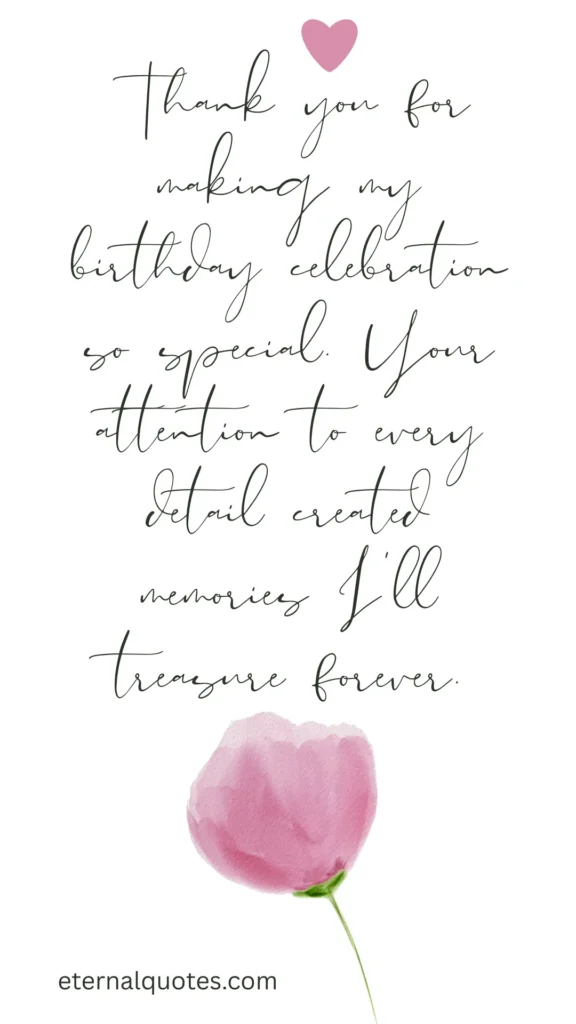 Thank you for
making my
birthday celebration
so special. Your
attention to every
detail created
memories I'll
treasure forever.
eternalquotes.com